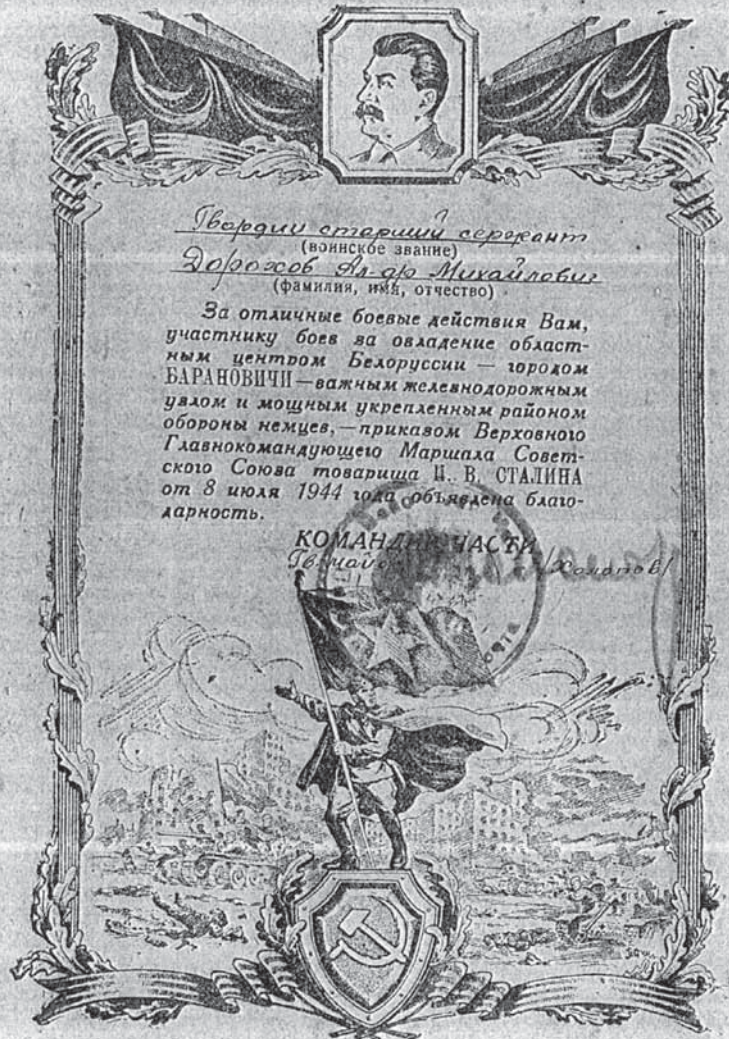 Гвардии старший сержант
(воинское звание)
Дорохов Ал-др Михайлович
(фамилия, имя, отчество)
За отличные боевые действия Вам,
участнику боев за овладение област-
ным центром Белоруссии — городом
БАРАНОВИЧИ — важным железнодорожным
узлом и мощным укрепленным районом
обороны немцев, — приказом Верховного
Главнокомандующего Маршала Совет-
ского Союза товарища И. В. СТАЛИНА
от 8 июля 1944 года объявлена благо-
дарность.
КОМАНДИР ЧАСТИ
Гв. майор /Холопов/